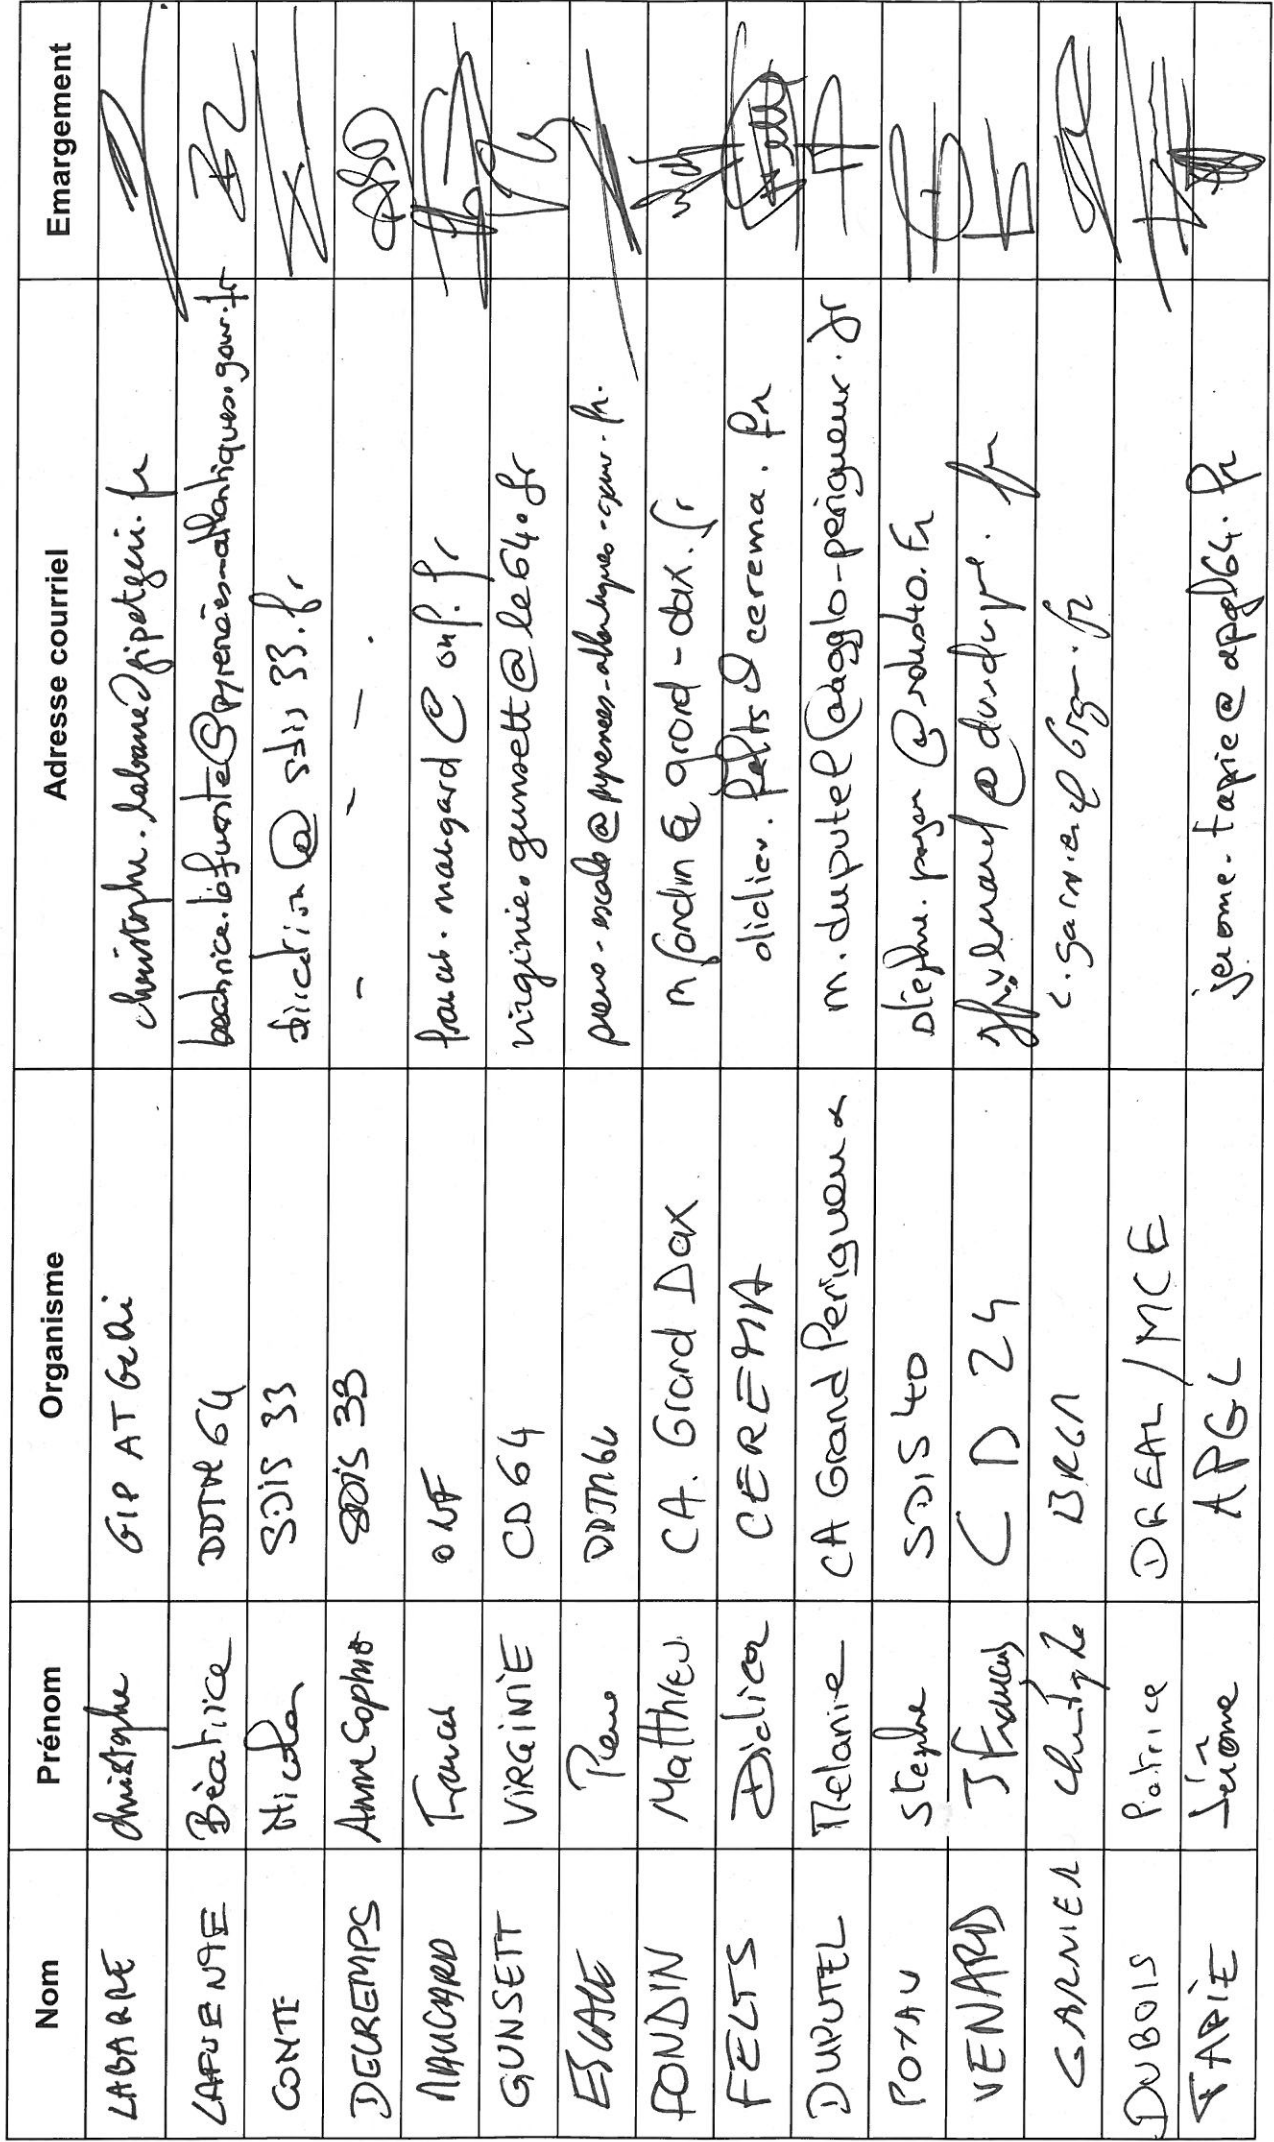 Nom Prénom Organisme Adresse courriel Emargement
LABARRE Christophe GIP ATGeRi
LAFUENTE Béatrice DDTM 64 beatrice.lafuente@pyrenees-atlantiques.gouv.fr
CONTE Nicolas SDIS 33 direction@sdis33.fr
DECREMPS Anne Sophie SDIS 33 - - - .
MAUGARD Franck ONF franck.maugard@onf.fr
GUNSETT VIRGINIE CD64 virginie.gunsett@le64.fr
ESCALE Pierre DDTM64 pierre.escale@pyrenees-atlantiques.gouv.fr.
FONDIN Matthieu CA. Grand Dax mfondin@grand-dax.fr
FELTS Didier CEREMA didier.felts@cerema.fr
DUPUTEL Melanie CA Grand Perigueux m.duputel@agglo-perigueux.fr
Stephe SDIS 40
VENARD J Francois CD 24
GARNIER Christophe BRGM c.garnier@brgm.fr
DUBOIS Patrice DREAL/MCE
TAPIE Jérôme APGL jerome.tapie@apgl64.fr